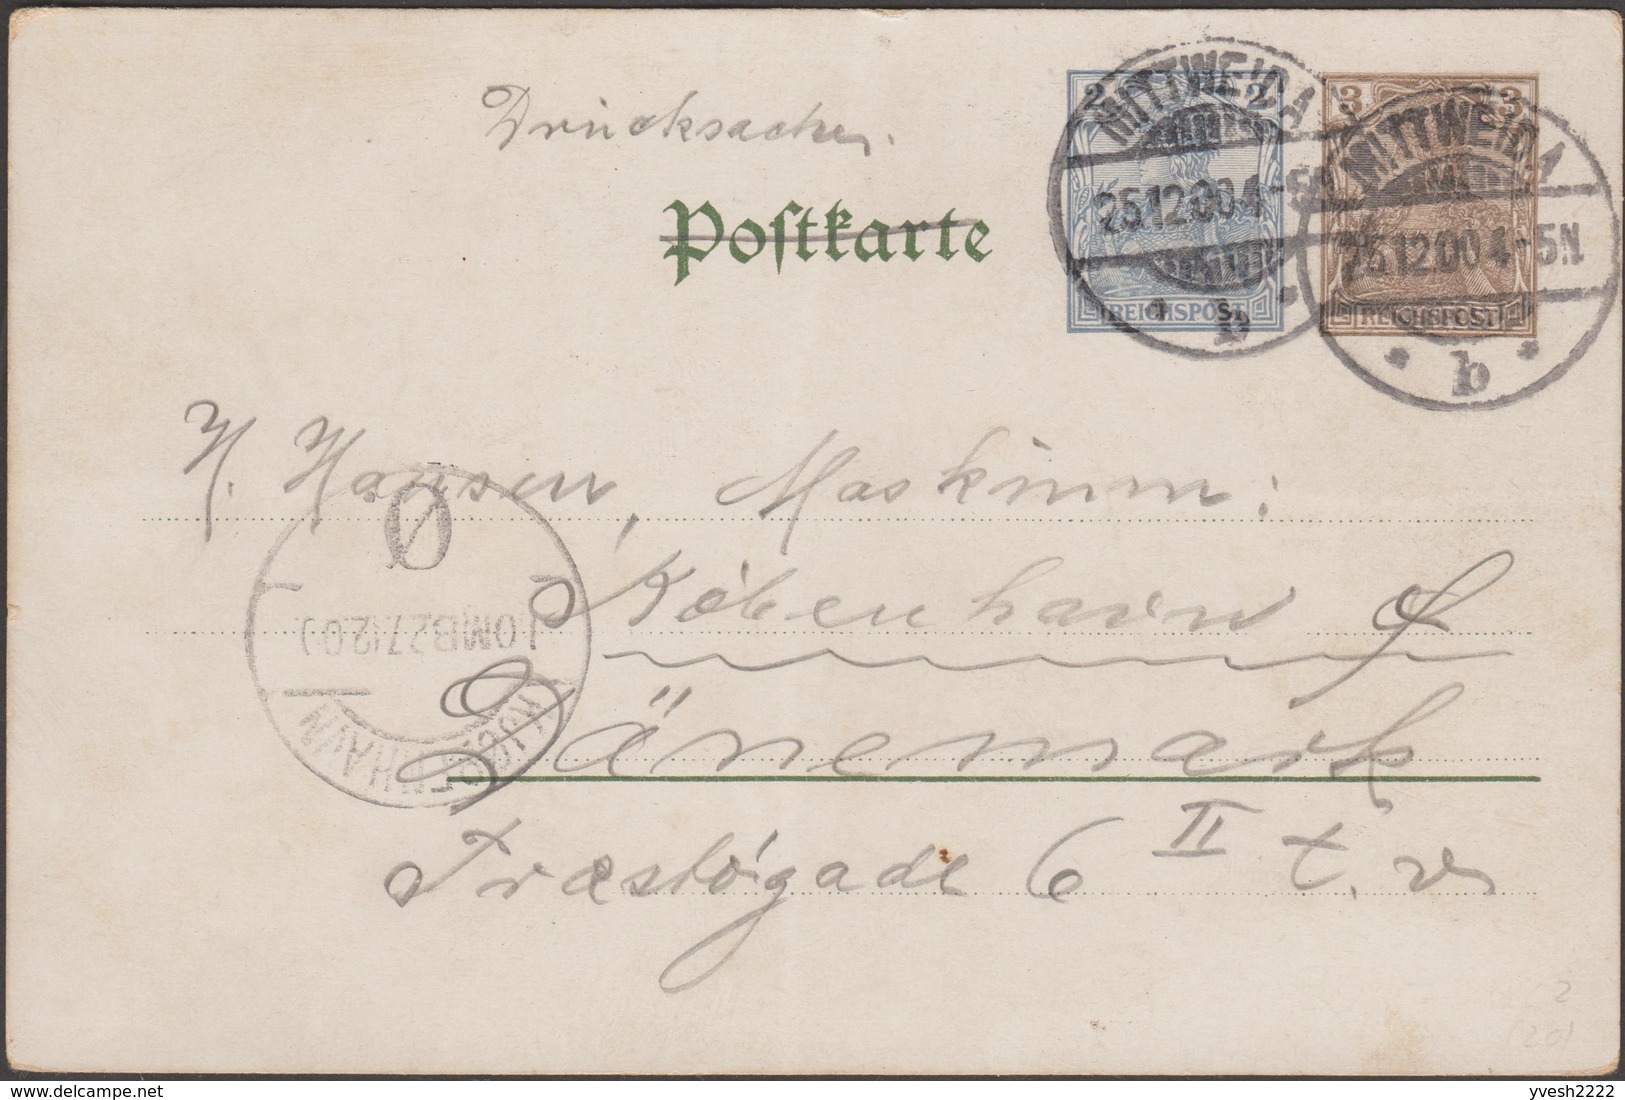 Drucksachen.
Postkarte
2 2
REICHSPOST
3 3
REICHSPOST
MITTWEIDA
25.12.00.4-5N
* b *
MITTWEIDA
25.12.00.4-5N
* b *
H. Hansen, Maskinm:
København Ø
Dänemark
6 II t. v
KJØBENHAVN
1 OMB 27.12.00
Ø
2
(20)
delcampe.net
yvesh2222